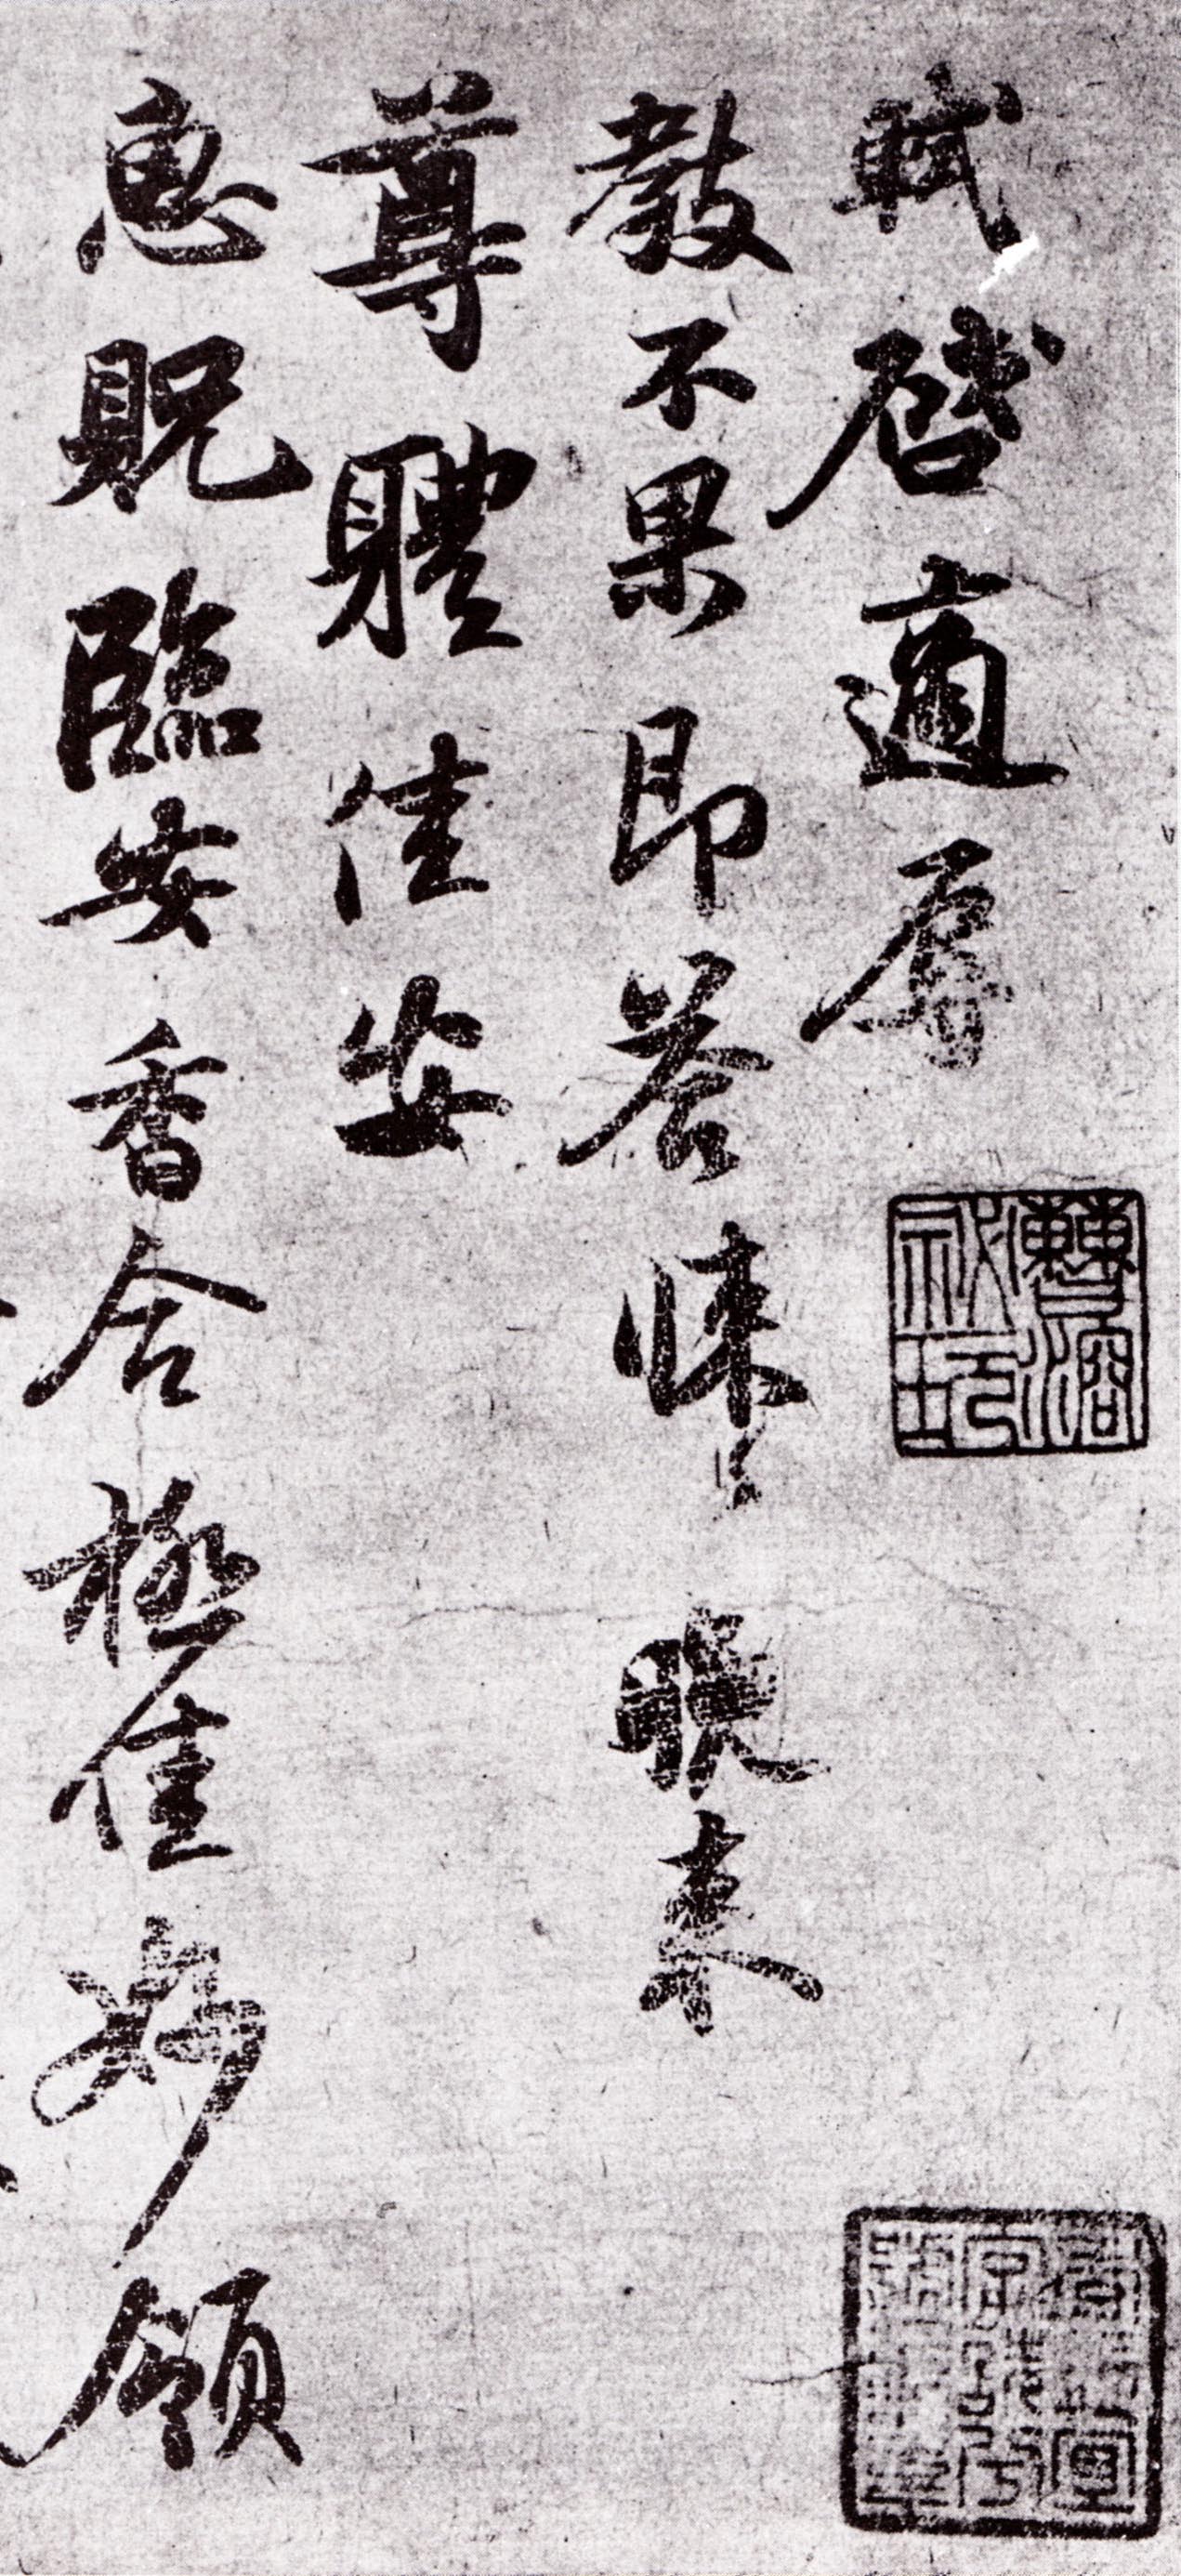 軾啓適辱
教不果即答悚息晚來
尊體佳安
惠貺臨安香合極佳妙領